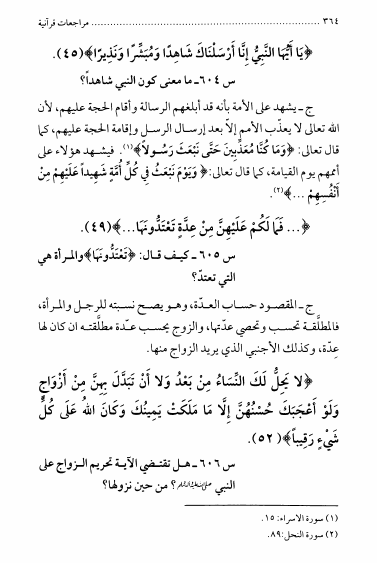 ٣٦٤ ........................................ مراجعات قرآنية
﴿يَا أَيُّهَا النَّبِيُّ إِنَّا أَرْسَلْنَاكَ شَاهِدًا وَمُبَشِّرًا وَنَذِيرًا﴾(٤٥).
س ٦٠٤ ـ ما معنى كون النبي شاهداً؟
ج ـ يشهد على الأمة بأنه قد أبلغهم الرسالة وأقام الحجة عليهم، لأن
الله تعالى لا يعذّب الأمم إلاّ بعد إرسال الرسل وإقامة الحجة عليهم، كما
قال تعالى: ﴿وَمَا كُنَّا مُعَذِّبِينَ حَتَّى نَبْعَثَ رَسُولاً﴾(١). فيشهد هؤلاء على
أممهم يوم القيامة، كما قال تعالى: ﴿وَيَوْمَ نَبْعَثُ فِي كُلِّ أُمَّةٍ شَهِيداً عَلَيْهِمْ مِنْ
أَنْفُسِهِمْ ...﴾(٢).
﴿... فَمَا لَكُمْ عَلَيْهِنَّ مِنْ عِدَّةٍ تَعْتَدُّونَهَا...﴾(٤٩).
س ٦٠٥ ـ كيف قال: ﴿تَعْتَدُّونَهَا﴾والمرأة هي
التي تعتدّ؟
ج ـ المقصود حساب العدّة، وهو يصح نسبته للرجل والمرأة،
فالمطلَّقة تحسب وتحصي عدّتها، والزوج يحسب عدّة مطلّقته ان كان لها
عِدّة، وكذلك الأجنبي الذي يريد الزواج منها.
﴿لا يَحِلُّ لَكَ النِّسَاءُ مِنْ بَعْدُ وَلا أَنْ تَبَدَّلَ بِهِنَّ مِنْ أَزْوَاجٍ
وَلَوْ أَعْجَبَكَ حُسْنُهُنَّ إِلَّا مَا مَلَكَتْ يَمِينُكَ وَكَانَ اللهُ عَلَى كُلِّ
شَيْءٍ رَقِيباً﴾(٥٢).
س ٦٠٦ ـ هل تقتضي الآية تحريم الزواج على
النبي ؟ من حين نزولها؟
(١) سورة الاسراء: ١٥.
(٢) سورة النحل: ٨٩.